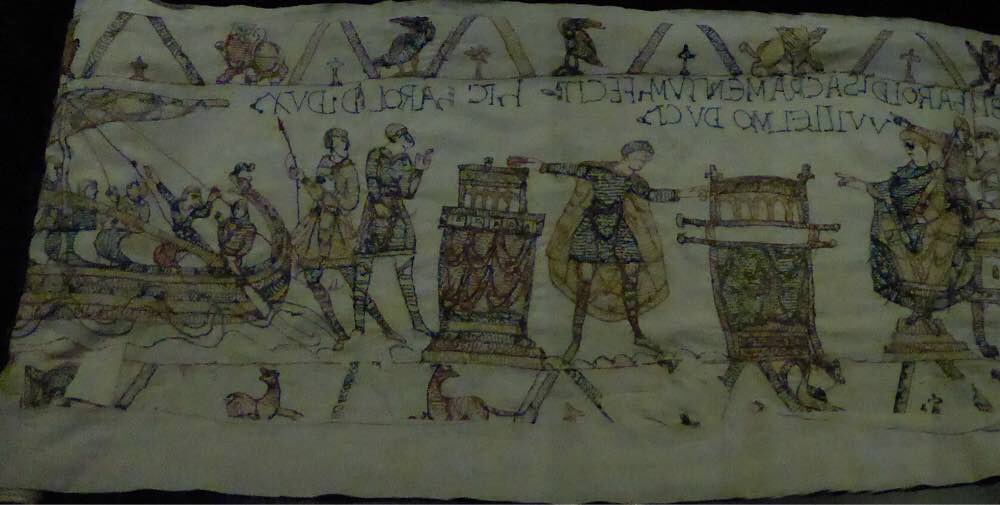 HAROLD: SACRAMENTVM: FECIT:- HIC HAROLD: DVX:
VVILLELMO DVCI:-